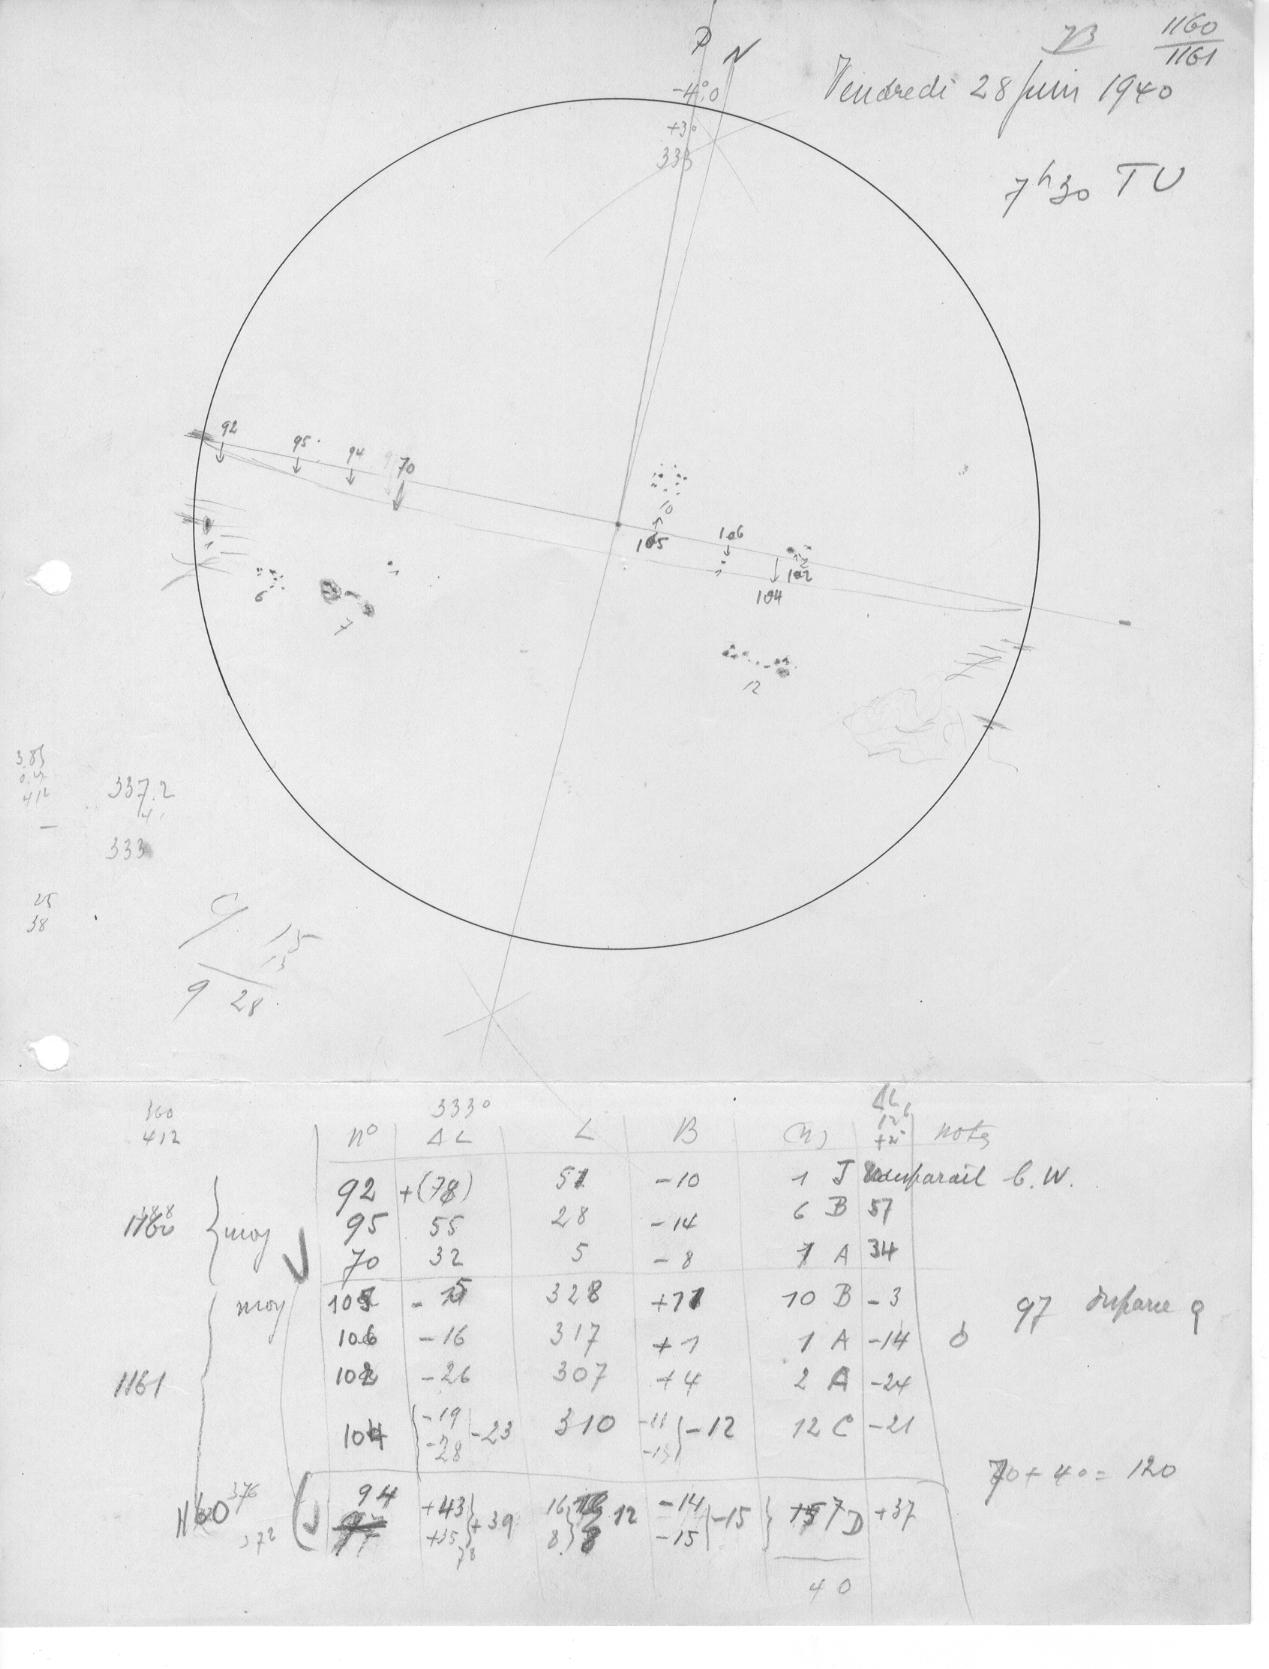 1160
1161
P N
Vendredi 28 Juin 1940
-4°,0
+3°
333
7h30 TU
92
95
94
70
10
105
106
102
104
1
6
7
1
1
2
12
3.85
412
337.2
333
25
38
15
13
9 28
360
412
333°
n° ΔL L B (n) ΔL notes
92 +(78) 51 -10 1 J
95 55 28 -14 6 B 57
70 32 5 -8 1 A 34
moy
moy
105 328 +11 10 B -3
97
106 -16 317 +1 1 A -14
1161
102 -26 307 +4 2 A -24
104 -19 -23 310 -11 -12 12 C -21
-28
70+40= 120
94 +43 +39 16 12 -14 -15 7 D +37
+35 8 8 -15
376
372
78
40